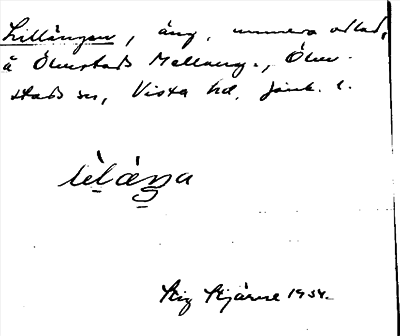 Lillängen, äng, numera odlad,
å Ölmstads Mellang., Ölm-
stads sn, Vista hd, Jönk. l.
Stig Stjärne 1934.